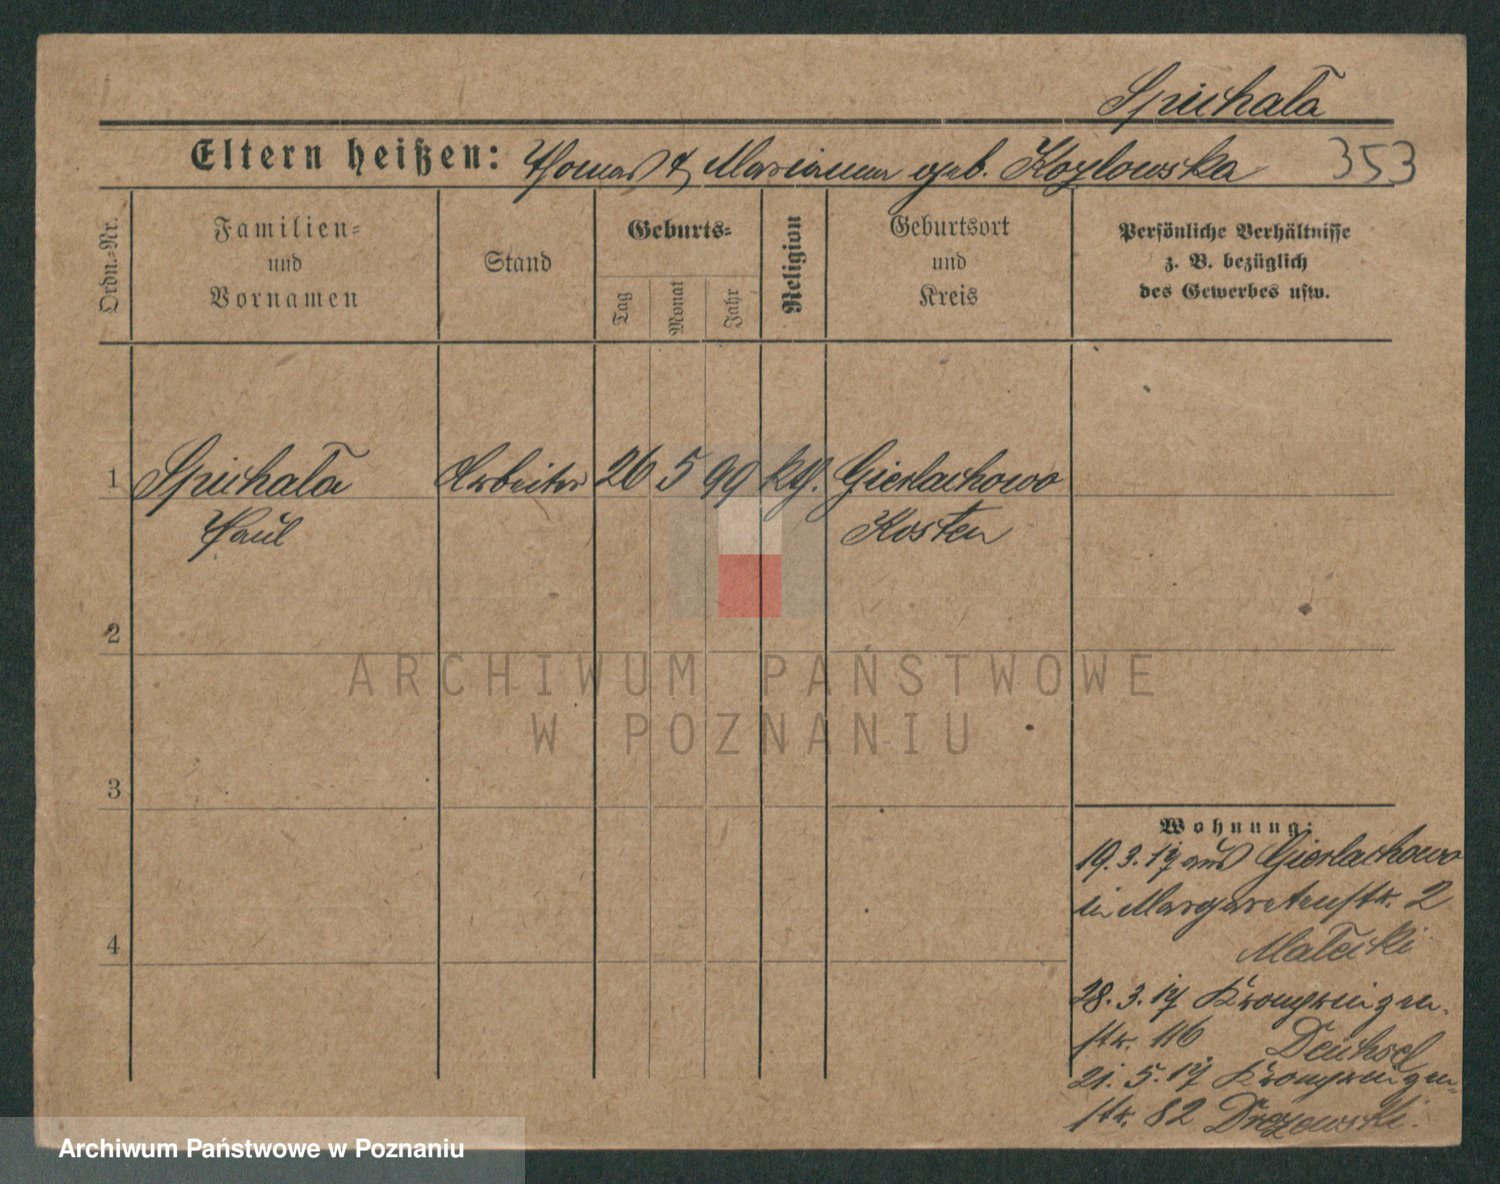 Spichała
Eltern heißen: Thomas & Marianna geb. Kozlowska 353
Ordn.-Nr.
Familien-
und
Vornamen
Stand
Geburts-
Tag
Monat
Jahr
Religion
Geburtsort
und
Kreis
Persönliche Verhältnisse
z. B. bezüglich
des Gewerbes usw.
1 Spichała Arbeiter 26 5 99 kth. Gierlachowo
Paul Kosten
2
3
4
Wohnung:
19.3.17 aus Gierlachowo
in Margaretenstr. 2
Małecki
28.3.17 Kronprinzen-
str. 116 Deuksel
21.5.17 Kronprinzen-
str. 82
ARCHIWUM PAŃSTWOWE
W POZNANIU
Archiwum Państwowe w Poznaniu